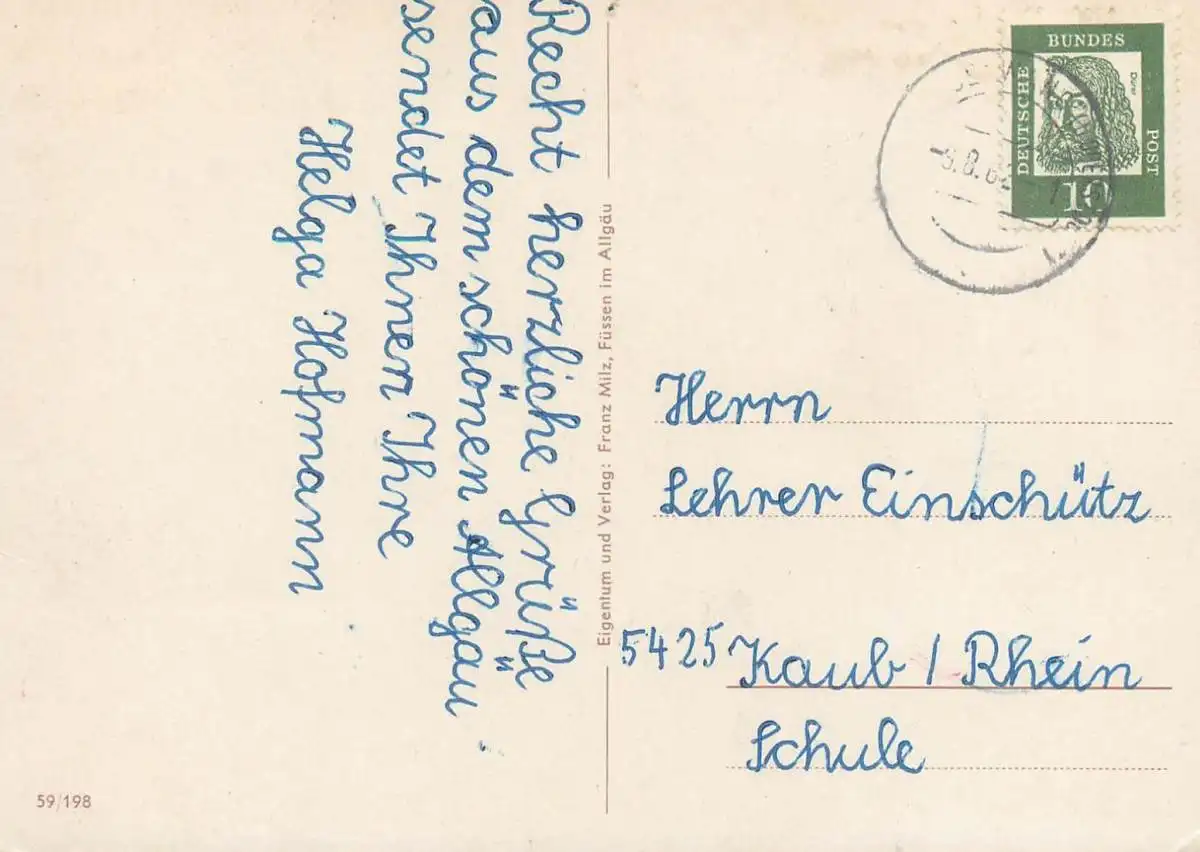 Recht herzliche Grüße
aus dem schönen Allgäu
sendet Ihnen Ihre
Helga Hofmann
Eigentum und Verlag: Franz Milz, Füssen im Allgäu
59/198
DEUTSCHE
BUNDES
POST
Dürer
10
Herrn
Lehrer Einschütz
5425 Kaub / Rhein
Schule